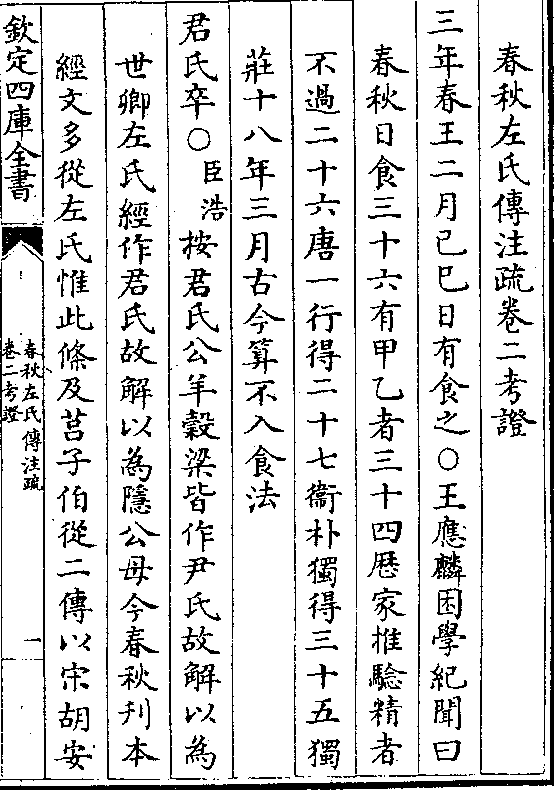 春秋左氏傳注疏卷二考證
三年春王二月己巳日有食之○王應麟困學紀聞曰
春秋日食三十六有甲乙者三十四歴家推驗精者
不過二十六唐一行得二十七衞朴獨得三十五獨
莊十八年三月古今算不入食法
君氏卒○臣浩按君氏公羊穀梁皆作尹氏故解以為
世卿左氏經作君氏故解以為隱公母今春秋刋本
經文多從左氏惟此條及莒子伯從二傳以宋胡安
欽定四庫全書
春秋左氏傳注疏
卷二考證
一